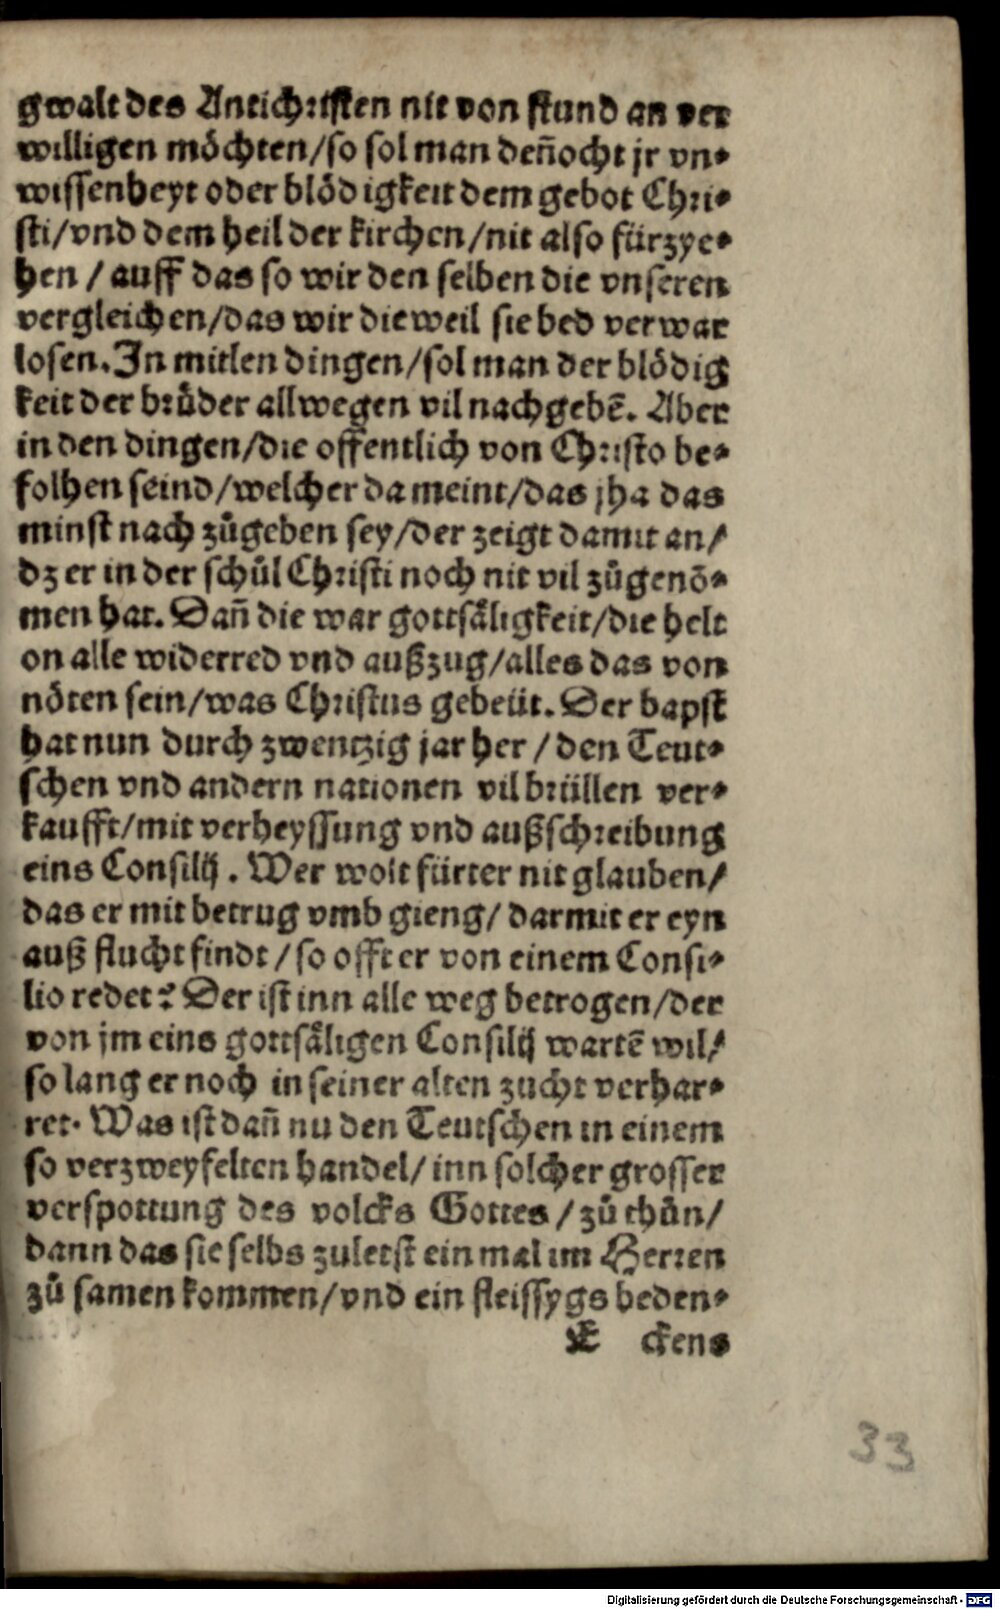 gwalt des Antichristen nit von stund an ver
willigen möchten/so sol man deñocht jr vn⸗
wissenheyt oder blödigkeit dem gebot Chri⸗
sti/vnd dem heil der kirchen/nit also fürzye⸗
hen / auff das so wir den selben die vnseren
vergleichen/das wir dieweil sie bed verwar
losen. In mitlen dingen/sol man der blödig
keit der brůder allwegen vil nachgebẽ. Aber
in den dingen/die offentlich von Christo be⸗
folhen seind/welcher da meint/das jha das
minst nach zůgeben sey/der zeigt damit an/
dz er in der schůl Christi noch nit vil zůgenõ⸗
men hat. Dañ die war gottsäligkeit/die helt
on alle widerred vnd außzug/alles das von
nöten sein/was Christus gebeüt. Der bapst
hat nun durch zwentzig jar her / den Teut⸗
schen vnd andern nationen vil brüllen ver⸗
kaufft/mit verheyssung vnd außschreibung
eins Consilij . Wer wolt fürter nit glauben/
das er mit betrug vmb gieng/ darmit er eyn
auß flucht findt / so offt er von einem Consi⸗
lio redet? Der ist inn alle weg betrogen/der
von jm eins gottsäligen Consilij wartẽ wil/
so lang er noch in seiner alten zucht verhar⸗
ret. Was ist dañ nu den Teutschen in einem
so verzweyfelten handel/ inn solcher grosser
verspottung des volcks Gottes / zů thůn/
dann das sie selbs zuletst ein mal im Herren
zů samen kommen/vnd ein fleissygs beden⸗
E ckens
33
Digitalisierung gefördert durch die Deutsche Forschungsgemeinschaft - DFG